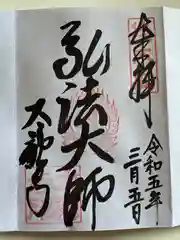 奉拝
令和五年
三月五日
弘法大師